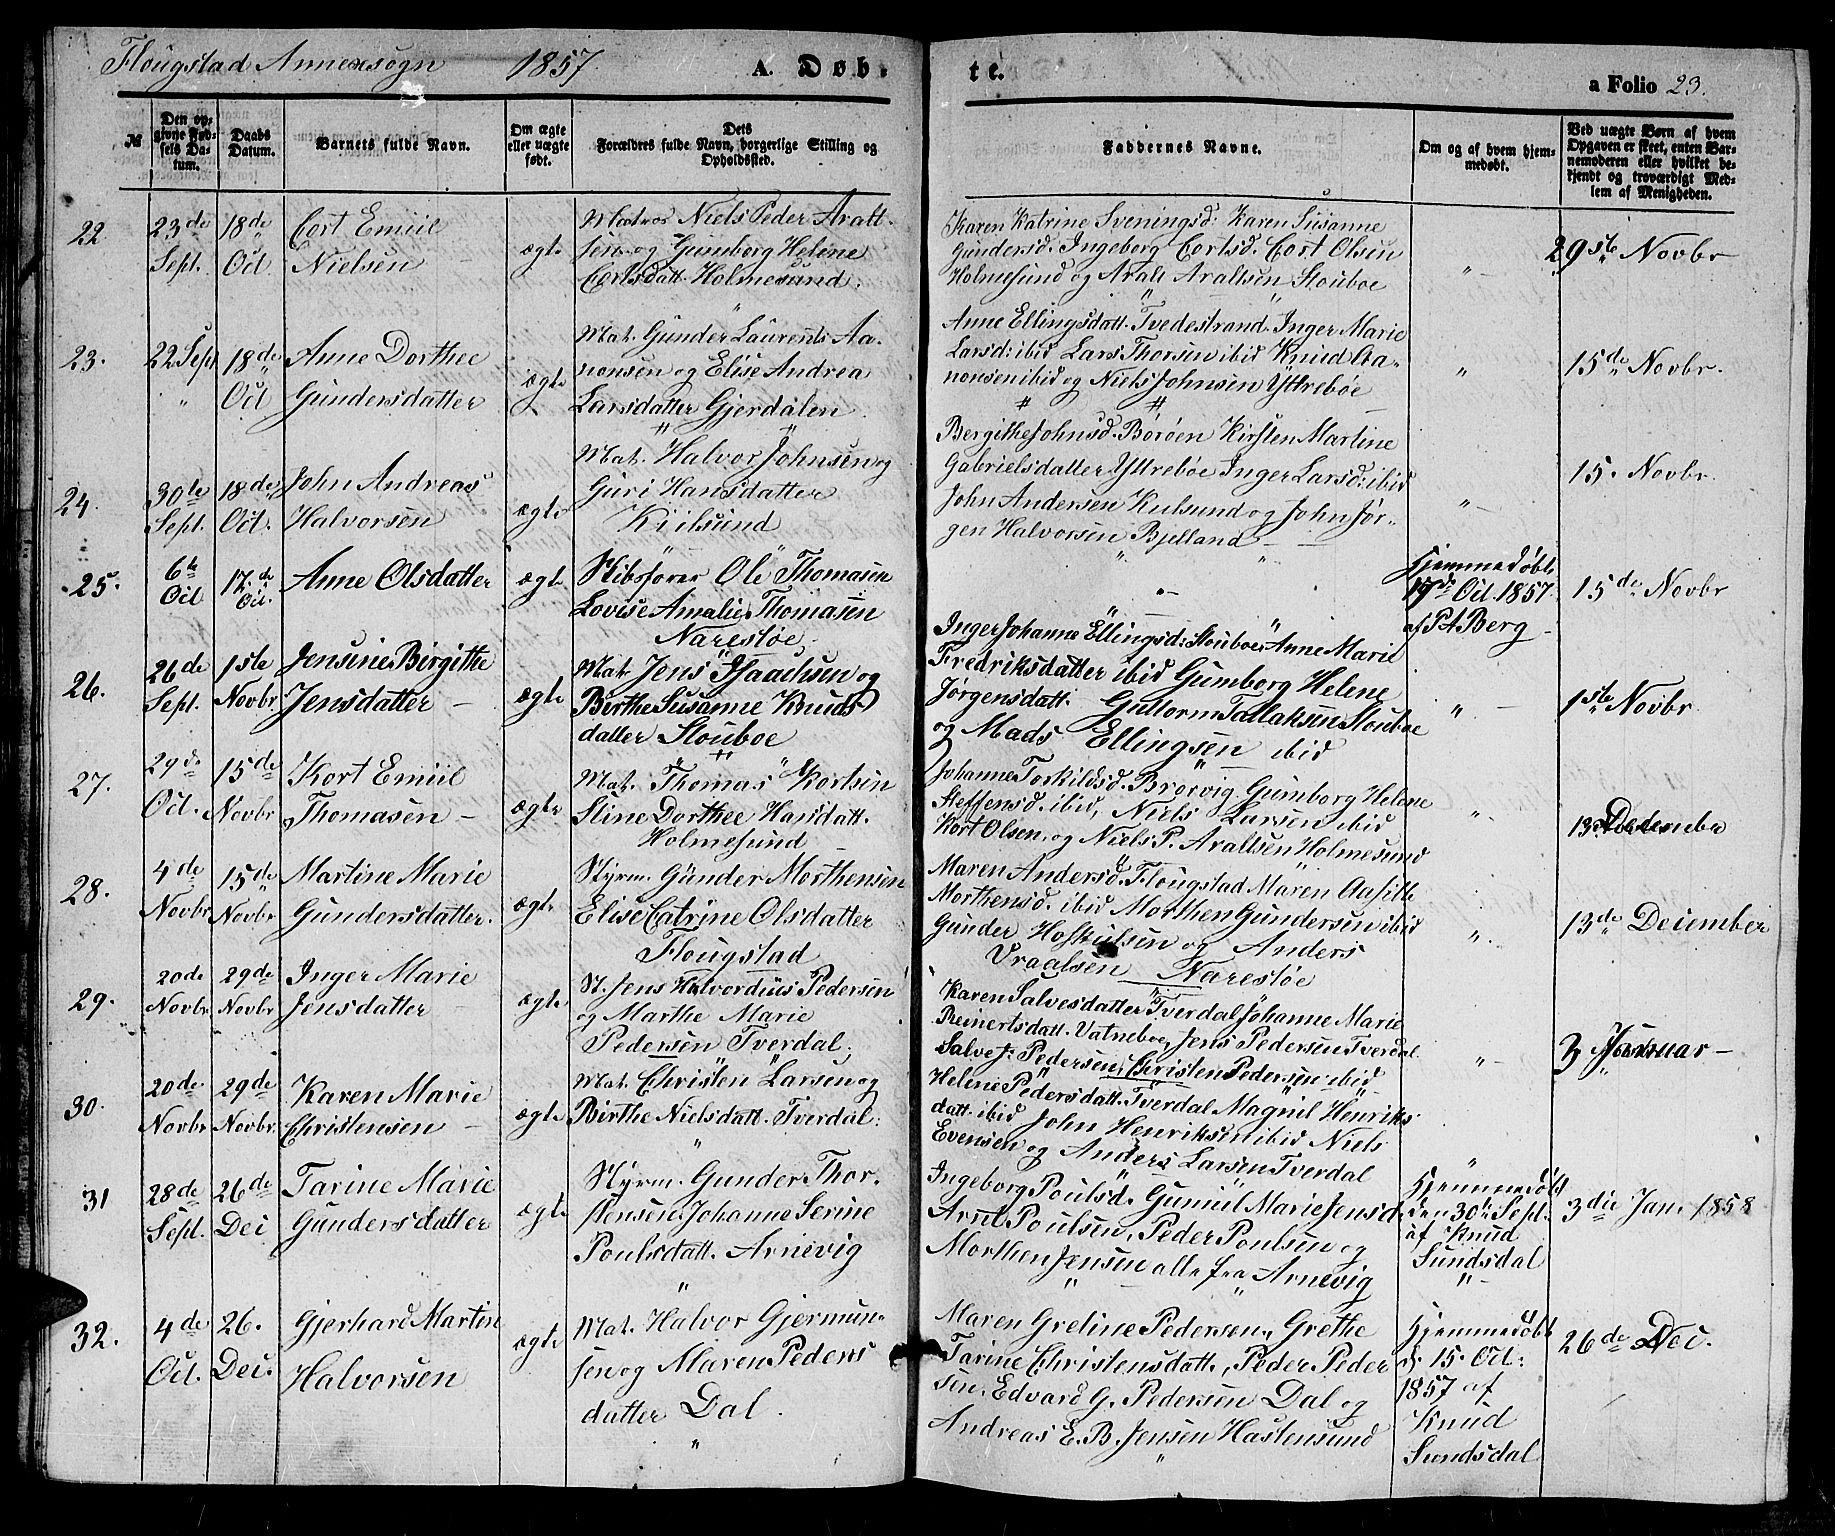 Flougstad Annexsogn 1857 A. Døb- te. a Folio 23.
№
Den op-
givne Fød-
sels Da-
tum.
Daabs
Datum.
Barnets fulde Navn.
Om ægte
eller uægte
født.
Dets
Forældres fulde Navn, borgerlige Stilling og
Opholdssted.
Faddernes Navne.
Om og af hvem hjem-
medøbt.
Ved uægte Børn af hvem
Opgaven er skeet, enten Bar-
nemoderen eller hvilket be-
kjendt og troværdigt Med-
lem af Menigheden.
22
23de
Sept.
18de
Oct
Cort Emiil
Nielsen
ægte
Matros Niels Peder Aralt-
sen og Gumborg Helene
Cortsdatt. Holmesund.
Karen Katrine Sveningsd: Karen Susanne
Gundersd. Ingeborg Cortsd: Cort Olsen
Holmesund og Aralt Araltsen Stouboe
"
29ste Novbr
23.
22 Sept
"
18de
Oct
Anne Dorthee
Gundersdatter
ægte
Mat. Gunder Laurents Aa-
nonsen og Elise Andrea
Larsdatter Gjerdalen
Anne Ellingsdatt. Tvedestrand. Inger Marie
Larsd: ibid Lars Thorsen ibid Knud Aa-
nonsen ibid og Niels Johnsen Yttrebøe
"
15de Novbr.
24.
30te
Sept.
18de
Oct.
John Andreas
Halvorsen
ægte
Mat. Halvor Johnsen og
Guri Hansdatter
Kiilsund
Bergithe Johnsd. Borøen Kirsten Martine
Gabrielsdatter Yttrebøe Inger Larsd: ibid
John Andersen Kulsund og John Jør-
gen Halvorsen Bjelland
"
15. Novbr.
25.
6te
Oct
17.de
Oct.
Anne Olsdatter
ægte
Skibsfører Ole Thomasen
Lovise Amalie Thomasen
Narestøe
"
Hjemmedøbt
17de Oct. 1857
af P A Berg
15de Novbr
26.
26de
Sept.
1ste
Novbr
Jensine Birgithe
Jensdatter
ægte
Mat. Jens Isaachsen og
Birthe Susanne Knuds-
datter Stouboe
Inger Johanne Ellingsd: Stouboe Anne Marie
Fredriksdatter ibid Gumborg Helene
Jørgensdatt. Guttorm Tallaksen Stouboe
og Mads Ellingsen ibid
"
1ste Novbr.
27.
29de
Oct.
15de
Novbr
Kort Emiil
Thomasen
ægte
Mat. Thomas Kortsen
Stine Dorthee Hansdatt.
Holmesund
Johanne Torkildsd. Brorvig Gumborg Helene
Steffensd. ibid, Niels Larsen ibid
Kort Olsen og Niels P. Araltsen Holmesund
"
13 December
28.
4de
Novbr
15de
Novbr
Martine Marie
Gundersdatter.
ægte
Styrm. Gunder Morthensen
Elise Catrine Olsdatter
Flougstad
Maren Andersd. Flougstad Maren Aasille
Morthensd. ibid Morthen Gundersen ibid
Gunder Hofkulsen og Anders
Vraalsen Narestøe
"
13de December
29.
20de
Novbr
29de
Novbr
Inger Marie
Jensdatter
ægte
St. Jens Halvordius Pedersen
og Marthe Marie
Pedersen Tverdal.
Karen Salvesdatter Tverdal Johanne Marie
Reinertsdatt. Vatneboe, Jens Pedersen Tverdal
Salve J. Pedersen, Christen Pedersen ibid
"
3 Januar
30.
20de
Novbr
29de
Novbr.
Karen Marie
Christensen
ægte
Mat. Christen Larsen og
Birthe Nielsdatt. Tverdal.
Heline Pedersdatt. Tverdal Magnil Henriks-
datt. ibid John Henriksen ibid Niels
Evensen og Anders Larsen Tverdal
"
31
28de
Sept.
26de
Dec
Tarine Marie
Gundersdatter
ægte
Styrm. Gunder Thor-
stensen, Johanne Serine
Poulsdatt. Arnevig
Ingeborg Poulsd. Gumiil Marie Jensd.
Arnt Poulsen, Peder Poulsen og
Morthen Jensen alle fra Arnevig
Hjemmedøbt
den 30te Sept.
af Knud
Sundsdal
3die Jan. 1858
32.
4de
Oct.
26.
Dec.
Gjerhard Martin
Halvorsen
ægte
Mat. Halvor Gjermun-
sen og Maren Peders
datter Dal.
Maren Greline Pedersen, Grethe
Tarine Christensdatt., Peder Peder
sen, Edvard G. Pedersen Dal og
Andreas E. B. Jensen Hastensund
Hjemmedøbt
d. 15. Oct:
1857 af
Knud
Sundsdal
26de Dec.